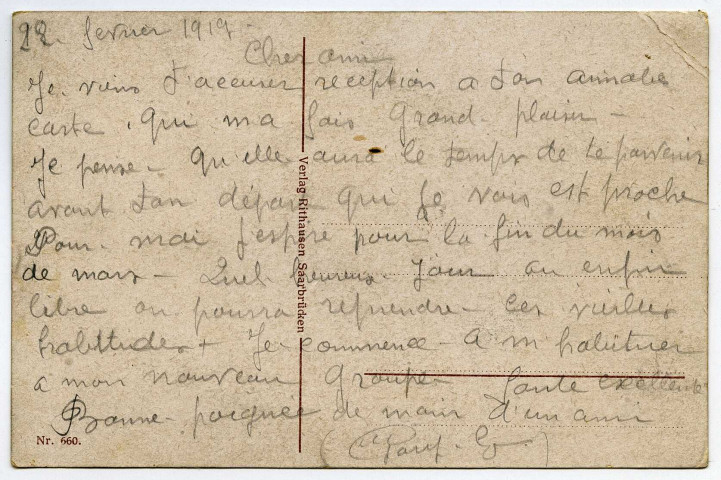 28. fevrier 1919-
Cher ami
Je viens t'accuser reception a ton aimable
carte, qui m'a fais Grand plaisir-
Je pense- qu'elle aura le temps de te parvenir
avant ton départ qui je vois est proche
Pour- moi j'espère pour la fin du mois
de mars- Quel heureux- Jour ou enfin
libre on pourra reprendre- ces vieilles
habitudes+ Je commence- a m'habituer
a mon nouveau Groupe- Sante excellente
Bonne- poignée de main d'un ami
Verlag Rithausen Saarbrücken
Nr. 660.